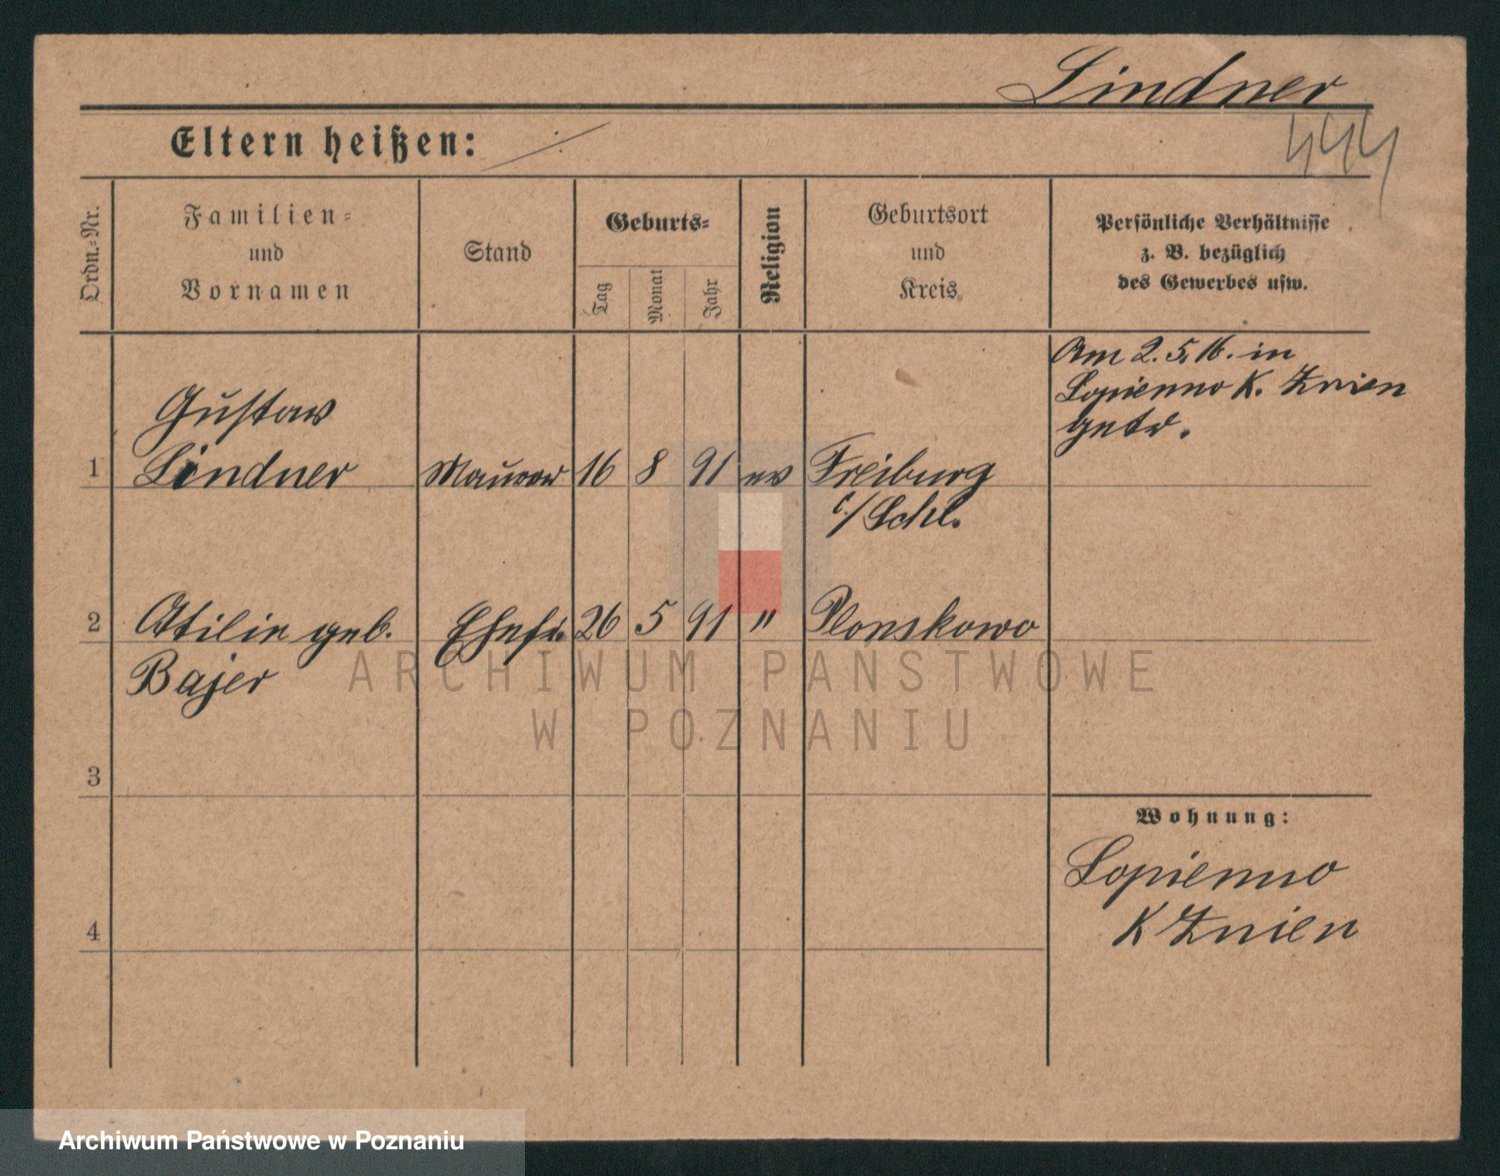 Lindner
444
Eltern heißen:
Ordn.=Nr.
Familien=
und
Vornamen
Stand
Geburts=
Tag
Monat
Jahr
Religion
Geburtsort
und
Kreis
Persönliche Verhältnisse
z. B. bezüglich
des Gewerbes usw.
Am 2. 5. 16. in
Lopienno K. Znien
getr.
Gustav
1 Lindner Maurer 16 8 91 ev Freiburg
i/Schl.
2 Otilie geb. Ehefr. 26 5 91 " Plonskowo
Bajer
3
Wohnung:
Lopienno
K Znien
4
ARCHIWUM PAŃSTWOWE
W POZNANIU
Archiwum Państwowe w Poznaniu